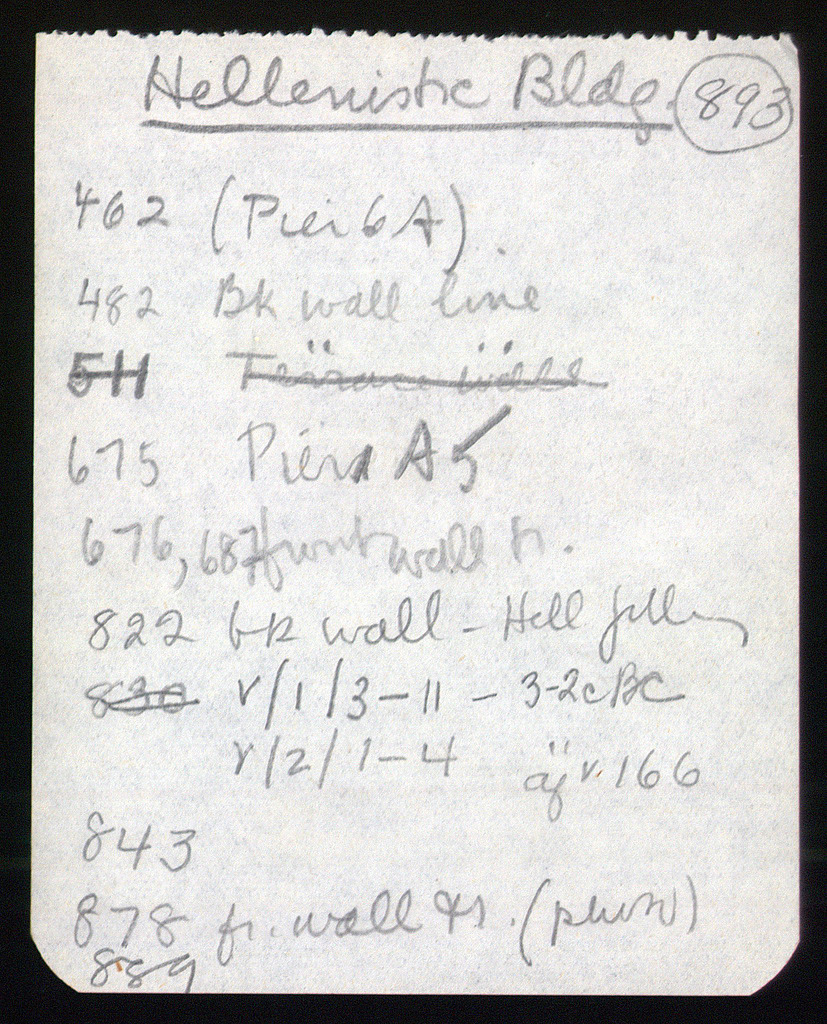 Hellenistic Bldg. 893
462 (Pier 6 A)
482 Bk wall line
511 Terrace wall
675 Pier A5
676, 687 front wall tr.
822 bk wall - Hell filling
830 γ/1/3-11 - 3-2c BC
γ/2/1-4 166
843
878 fr. wall (photo)
889